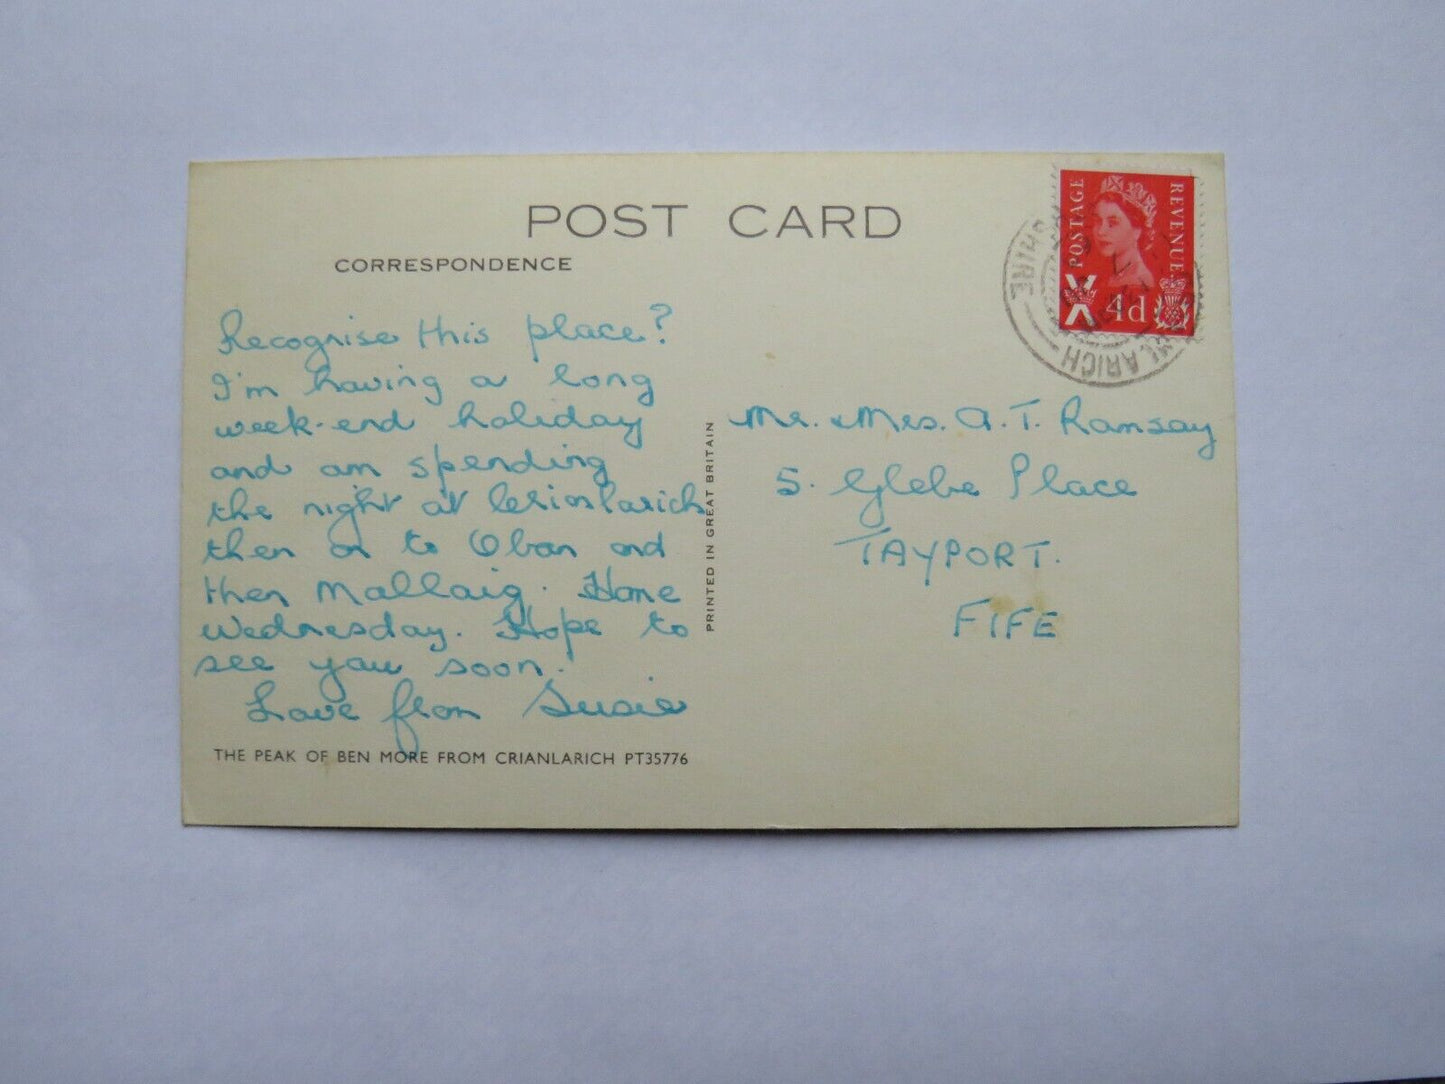 POST CARD
CORRESPONDENCE
Recognise this place?
I'm having a long
week-end holiday
and am spending
the night at Crianlarich
then on to Oban and
then Mallaig. Home
Wednesday. Hope to
see you soon.
Love from Susie
THE PEAK OF BEN MORE FROM CRIANLARICH PT35776
PRINTED IN GREAT BRITAIN
POSTAGE
REVENUE
4d
Mr. & Mrs. A. T. Ramsay
5. Glebe Place
TAYPORT.
FIFE